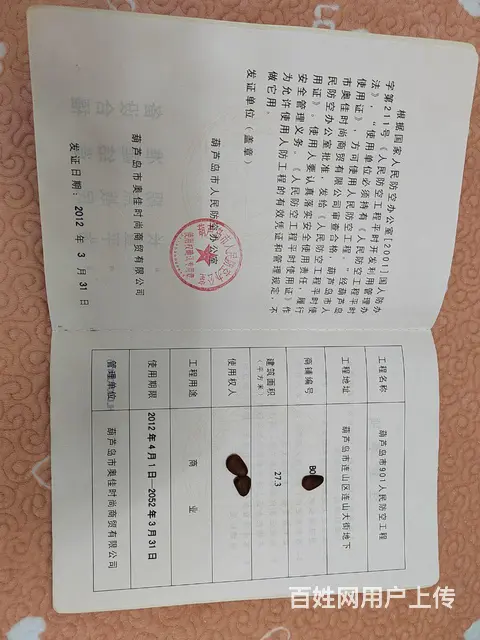 根据国家人民防空办公室[2001]国人防办
字第211号《人民防空工程平时开发利用管理办
法》，“使用单位必须持有《人民防空工程平时
使用证》，方可使用人民防空工程。”经葫芦岛
市奥佳时尚商贸有限公司审查合格，葫芦岛市人
民防空办公室批准，发给《人民防空工程平时使
用证》，使用人要认真落实安全使用责任，履行
安全管理义务。《人民防空工程平时使用证》作
为允许使用人防工程的有效凭证和管理规定，不
做它用。
发证单位（盖章）
葫芦岛市人民防空办公室
葫芦岛市奥佳时尚商贸有限公司
发证日期：2012 年 3 月 31 日
工程名称 葫芦岛市901人民防空工程
工程地址 葫芦岛市连山区连山大街地下
商铺编号 B0
建筑面积（平方米） 27.3
使用权人
工程用途 商 业
使用期限 2012年4月1日—2052年3月31日
管理单位 葫芦岛市奥佳时尚商贸有限公司
百姓网用户上传